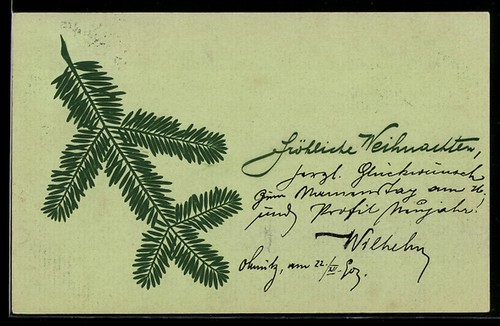 Fröhliche Weihnachten,
herzl. Glückwünsch
zum Namenstag am 26.
und Prosit Neujahr!
Wilhelm
am 22./XII. 902.